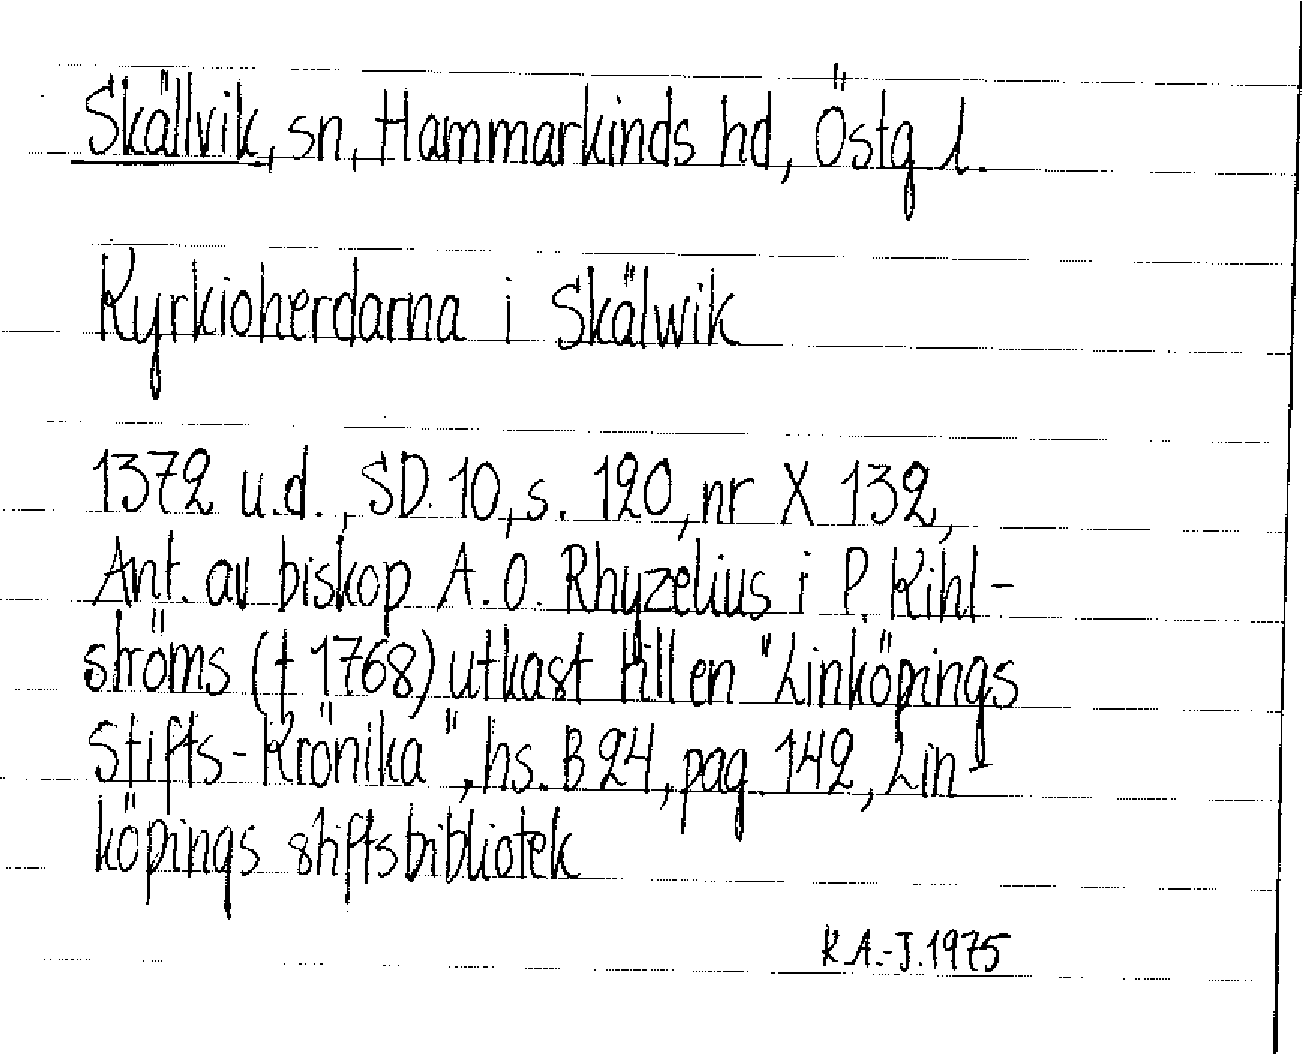 Skällvik, sn, Hammarkinds hd, Östg l.
Kyrkioherdarna i Skälwik
1372 u.d., SD 10, s. 120, nr X 132,
Ant. av biskop A. O. Rhyzelius i P. Kihl-
ströms († 1768) utkast till en "Linköpings
Stifts-Krönika", hs. B 24, pag. 142, Lin-
köpings stiftsbibliotek
K.A.-J. 1975